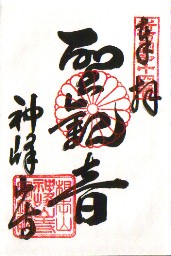 奉拝
聖観音
神峰山寺